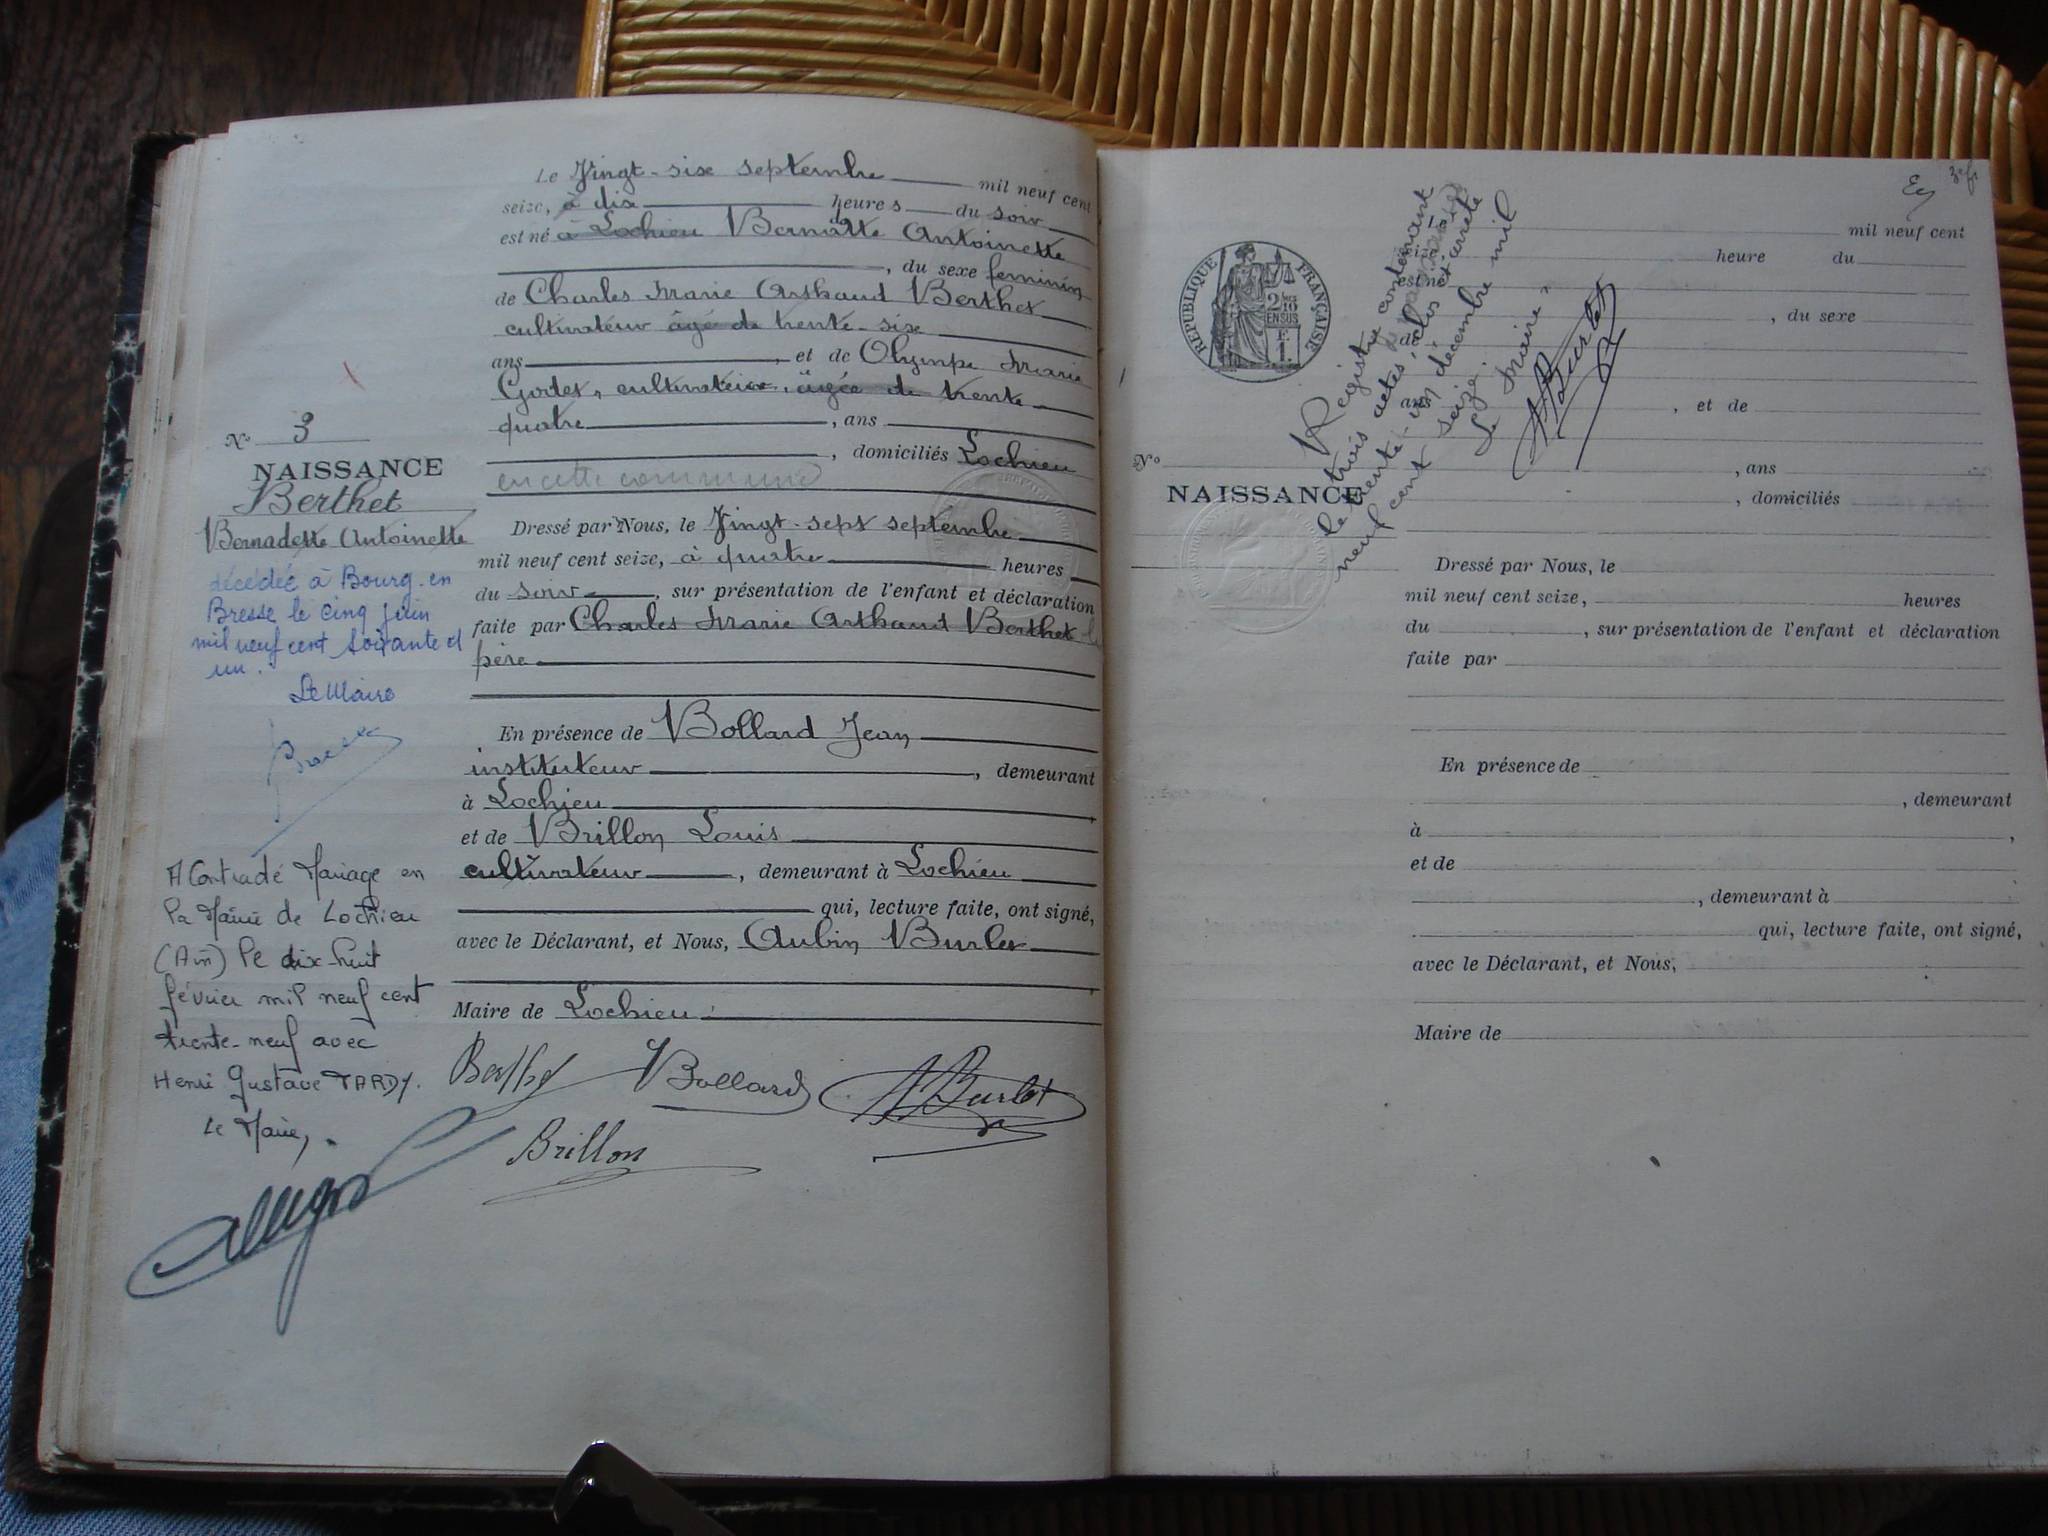 Le Vingt-six septembre mil neuf cent
seize, à dix heures du soir
est né à Lochieu Bernadette Antoinette
, du sexe feminin
de Charles Marie Arthaud Berthet
cultivateur âgé de trente-six
ans, et de Olympe Marie
Godet, cultivatrice, âgée de trente
quatre, ans
, domiciliés Lochieu
en cette commune
N° 3
NAISSANCE
Berthet
Bernadette Antoinette
décédée à Bourg-en
Bresse le cinq juin
mil neuf cent soixante et
un.
Le Maire
A Contracté Mariage en
la Mairie de Lochieu
(Ain) le dix-huit
février mil neuf cent
trente-neuf avec
Henri Gustave TARDY.
Le Maire,
Dressé par Nous, le Vingt-sept septembre
mil neuf cent seize, à quatre heures
du soir, sur présentation de l'enfant et déclaration
faite par Charles Marie Arthaud Berthet le
père
En présence de Bollard Jean
instituteur, demeurant
à Lochieu
et de Brillon Louis
cultivateur, demeurant à Lochieu
qui, lecture faite, ont signé,
avec le Déclarant, et Nous, Aubin Burlet
Maire de Lochieu
Berthet Bollard A Burlet
Brillon
RÉPUBLIQUE FRANÇAISE
2/10 EN SUS
F. 1.
Registre contenant
trois actes, clos et arrêté
le trente-un décembre mil
neuf cent seize.
Le Maire
A Burlet
Le mil neuf cent
seize, heure du
est né
, du sexe
de
ans, et de
, ans
, domiciliés
N°
NAISSANCE
Dressé par Nous, le
mil neuf cent seize, heures
du, sur présentation de l'enfant et déclaration
faite par
En présence de
, demeurant
à,
et de
, demeurant à
qui, lecture faite, ont signé,
avec le Déclarant, et Nous,
Maire de